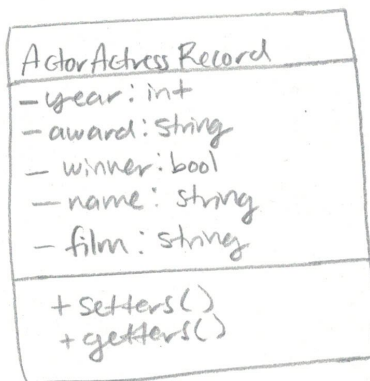 ActorActress Record
- year: int
- award: string
- winner: bool
- name: string
- film: string
+ setters()
+ getters()